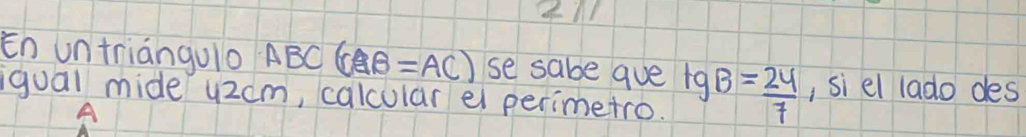 211
En un triángulo ABC (AB=AC) se sabe que tgB = 24/7, si el lado des
igual mide 42cm, calcular el perimetro.
A